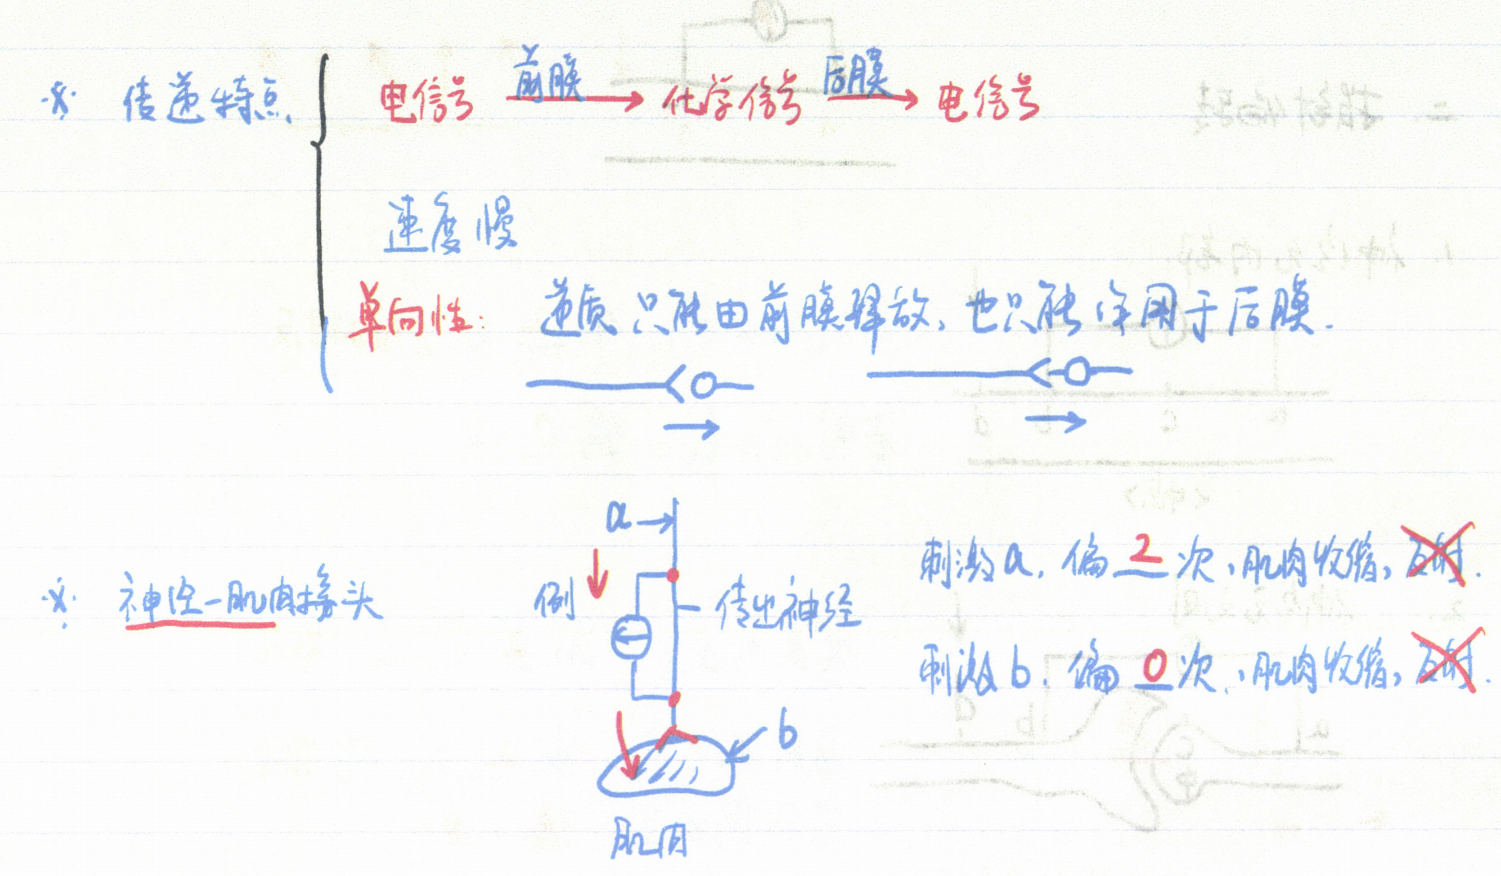 ※ 传递特点 电信号 前膜→ 化学信号 后膜→ 电信号
速度慢
单向性: 递质只能由前膜释放,也只能作用于后膜.
※ 神经-肌肉接头
例
a
传出神经
b
肌肉
刺激a,偏 2 次,肌肉收缩,反射.
刺激b,偏 0 次,肌肉收缩,反射.